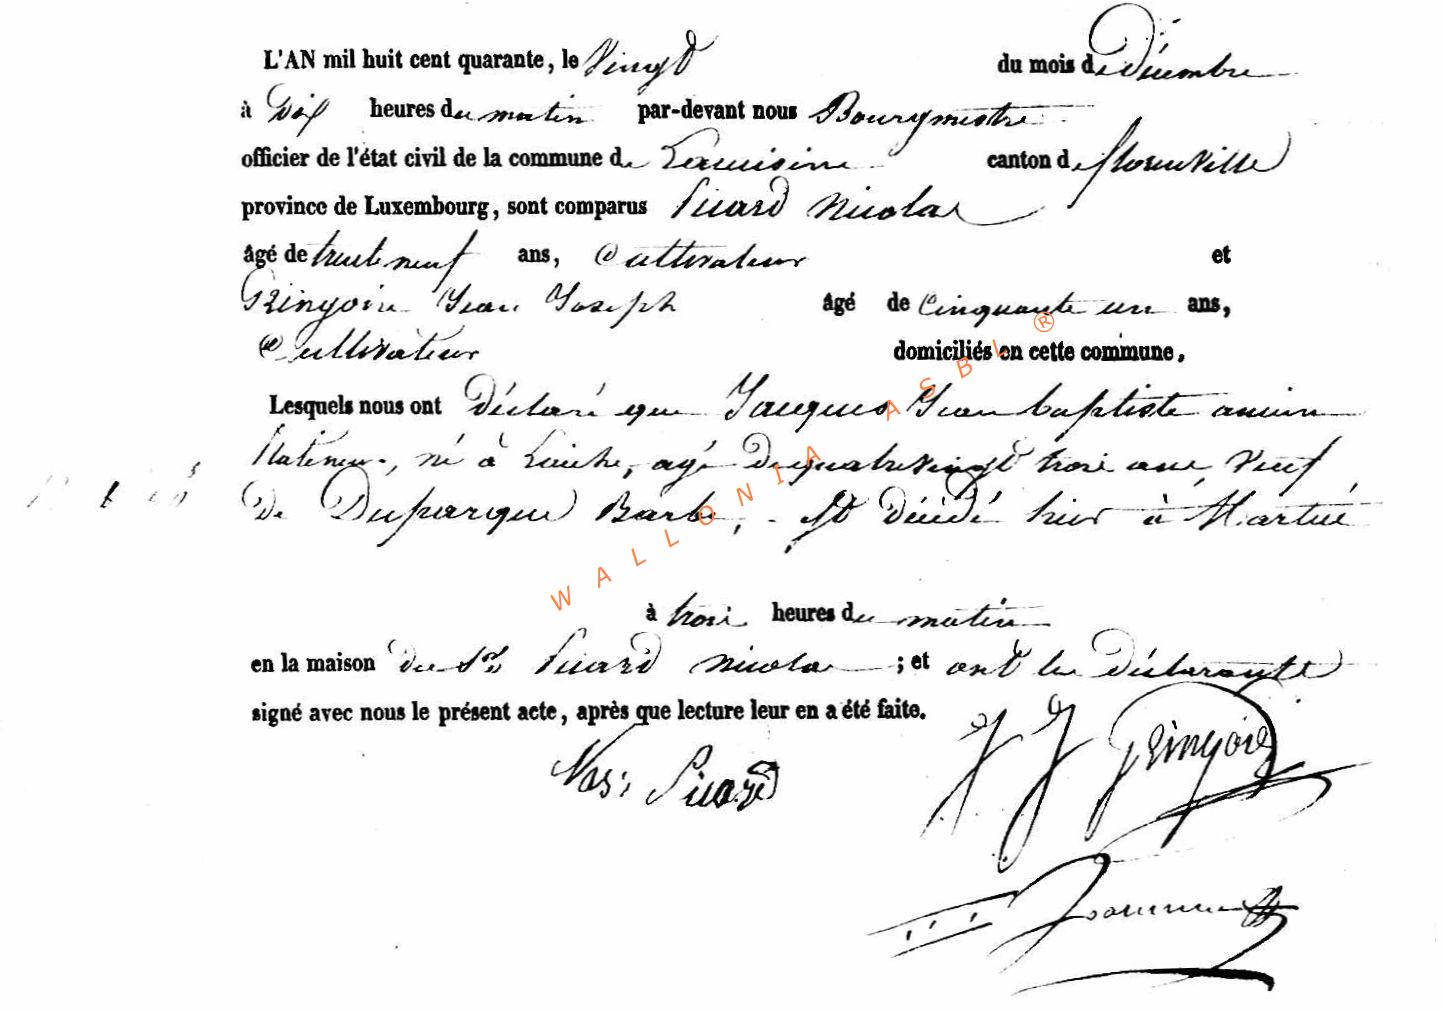 L'AN mil huit cent quarante, le Vingt du mois de Décembre
à Dix heures du matin par-devant nous Bourgmestre
officier de l'état civil de la commune de Lacuisine canton de florenville
province de Luxembourg, sont comparus Picard Nicolas
âgé de trente neuf ans, Cultivateur et
Gringoire Jean Joseph âgé de Cinquante un ans,
Cultivateur domiciliés en cette commune.
Lesquels nous ont Déclaré que Jacques Jean baptiste ancien
né à agé de quatrevingt trois ans, Veuf
De Duparque Barbe, Est décédé hier à Martué
à trois heures du matin
en la maison du Sr Picard nicolas ; et ont les Déclarants
signé avec nous le présent acte, après que lecture leur en a été faite.
Nas: Picard
J J Gringoire
WALLONIA ASBL ®